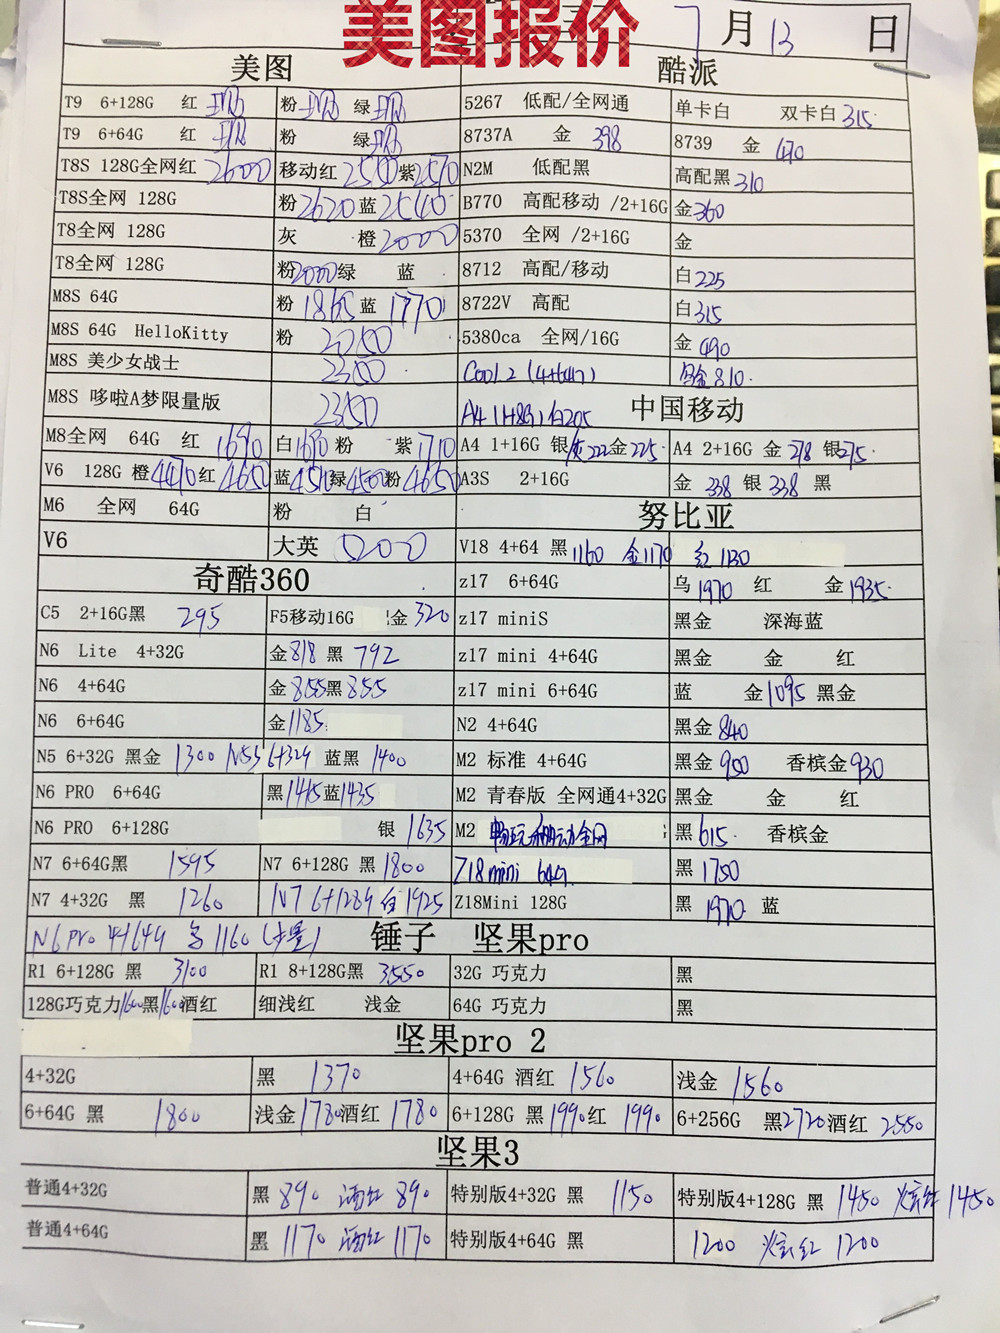 美图报价
7月13日
美图 酷派
T9 6+128G 红 现 粉 现 绿 现 5267 低配/全网通 单卡白 双卡白 315
T9 6+64G 红 现 粉 绿 现 8737A 金 398 8739 金 470
T8S 128G全网红 2600 移动红 2500 紫 2570 N2M 低配黑 高配黑 310
T8S全网 128G 粉 2620 蓝 2540 B770 高配移动 /2+16G 金 360
T8全网 128G 灰 橙 2000 5370 全网 /2+16G 金
T8全网 128G 粉 2000 绿 蓝 8712 高配/移动 白 225
M8S 64G 粉 1865 蓝 1770 8722V 高配 白 315
M8S 64G HelloKitty 粉 5380ca 全网/16G 金 490
M8S 美少女战士 2300 Cool 2 (4+64G) 金 810
M8S 哆啦A梦限量版 2350 A4 (1+8G) 白205 中国移动
M8全网 64G 红 1690 白 1690 粉 紫 1710 A4 1+16G 银 灰 222 金 225 A4 2+16G 金 278 银 275
V6 128G 橙 4470 红 4650 蓝 4510 绿 4500 粉 4650 A3S 2+16G 金 338 银 338 黑
M6 全网 64G 粉 白 努比亚
V6 大英 5200 V18 4+64 黑 1160 金 1170 红 1130
奇酷360 z17 6+64G 乌 1970 红 金 1935
C5 2+16G黑 295 F5移动16G 金 320 z17 miniS 黑金 深海蓝
N6 Lite 4+32G 金 818 黑 792 z17 mini 4+64G 黑金 金 红
N6 4+64G 金 855 黑 855 z17 mini 6+64G 蓝 金 1095 黑金
N6 6+64G 金 1185 N2 4+64G 黑金 840
N5 6+32G 黑金 1300 N5S 6+32G 蓝黑 1400 M2 标准 4+64G 黑金 950 香槟金 930
N6 PRO 6+64G 黑 1445 蓝 1435 M2 青春版 全网通4+32G 黑金 金 红
N6 PRO 6+128G 银 1635 M2 畅玩 全网 黑 615 香槟金
N7 6+64G黑 1595 N7 6+128G 黑 1800 Z18mini 64G 黑 1750
N7 4+32G 黑 1260 N7 6+128G 白 1925 Z18Mini 128G 黑 1970 蓝
N6 Pro 4+64G 1160 锤子 坚果pro
R1 6+128G 黑 3100 R1 8+128G黑 3550 32G 巧克力 黑
128G巧克力 1600 黑 1600 酒红 细浅红 浅金 64G 巧克力 黑
坚果pro 2
4+32G 黑 1370 4+64G 酒红 1560 浅金 1560
6+64G 黑 1800 浅金 1780 酒红 1780 6+128G 黑 1990 红 1990 6+256G 黑 2720 酒红 2550
坚果3
普通4+32G 黑 890 酒红 890 特别版4+32G 黑 1150 特别版4+128G 黑 1450 炫红 1450
普通4+64G 黑 1170 酒红 1170 特别版4+64G 黑 1200 炫红 1200